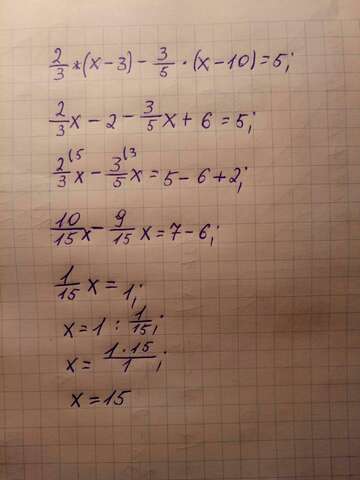 2/3 * (x - 3) - 3/5 · (x - 10) = 5;
2/3 x - 2 - 3/5 x + 6 = 5;
2(5/3 x - 3(3/5 x = 5 - 6 + 2;
10/15 x - 9/15 x = 7 - 6;
1/15 x = 1;
x = 1 : 1/15;
x = 1·15/1;
x = 15